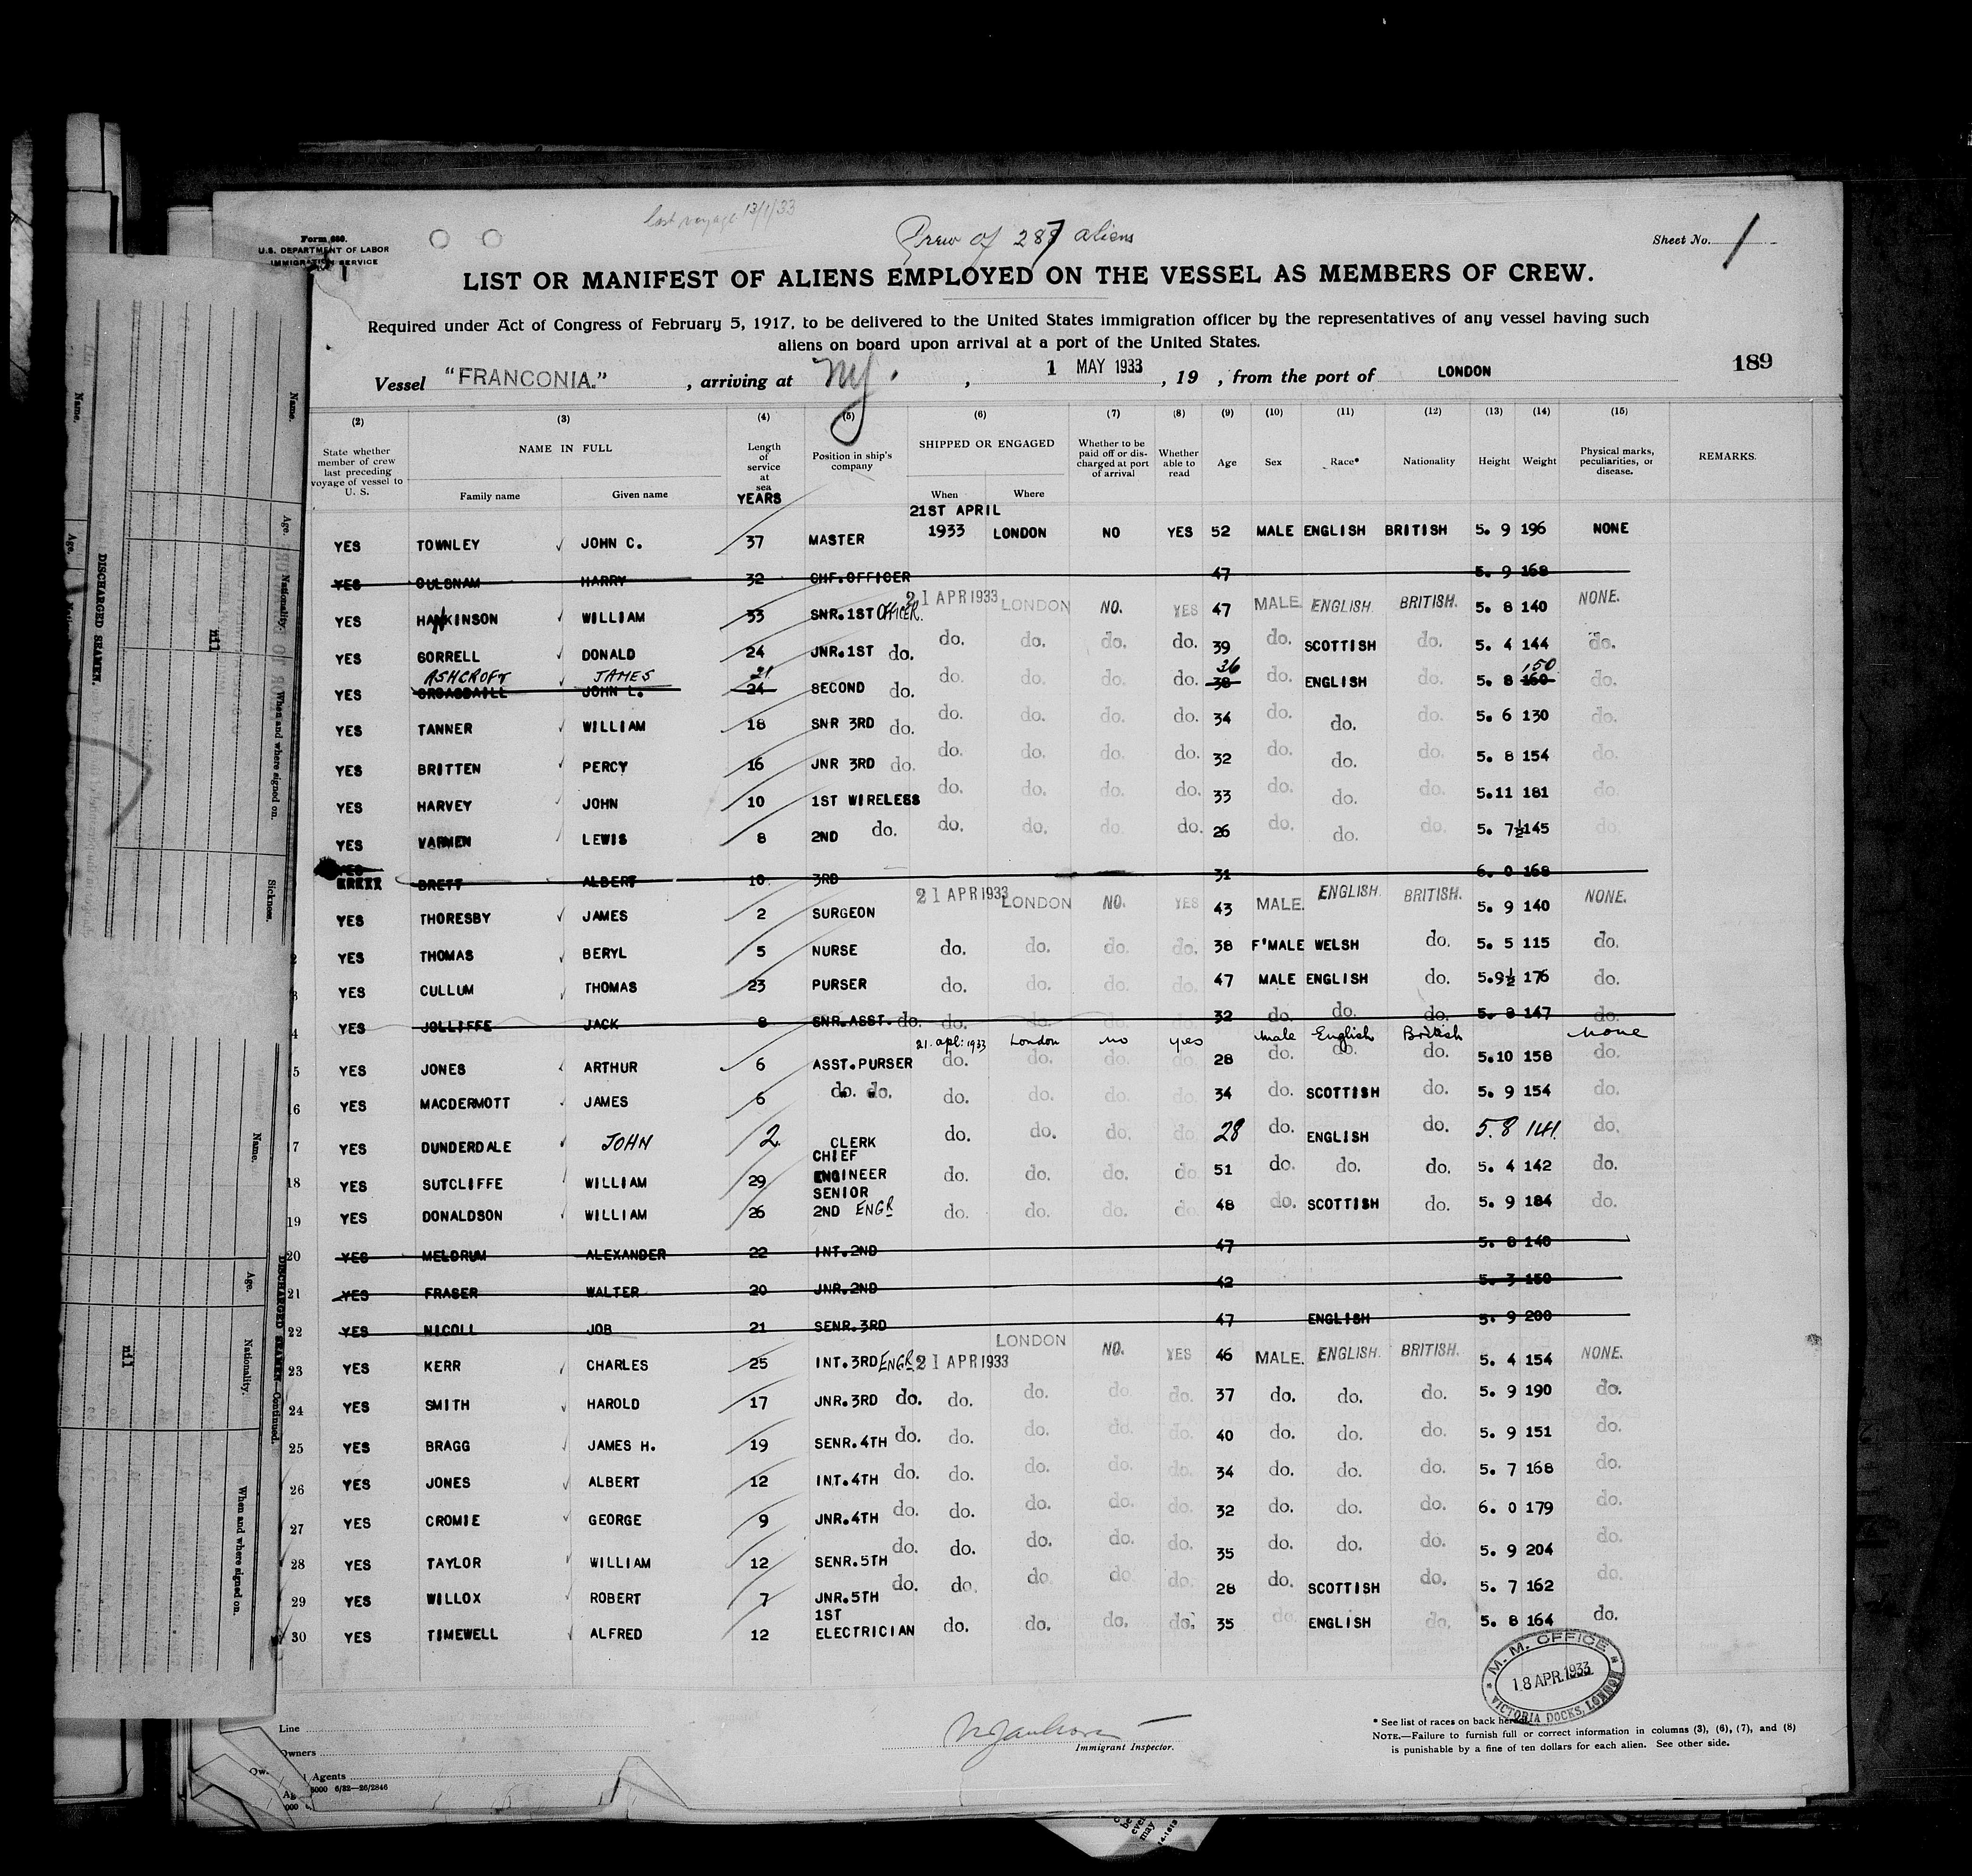 last voyage 13/1/33
Crew of 287 aliens
Form 680.
U.S. DEPARTMENT OF LABOR
IMMIGRATION SERVICE
Sheet No. 1
LIST OR MANIFEST OF ALIENS EMPLOYED ON THE VESSEL AS MEMBERS OF CREW.
Required under Act of Congress of February 5, 1917, to be delivered to the United States immigration officer by the representatives of any vessel having such
aliens on board upon arrival at a port of the United States.
189
Vessel "FRANCONIA." , arriving at NY. , 1 MAY 1933 , 19 , from the port of LONDON
(2) (3) (4) (5) (6) (7) (8) (9) (10) (11) (12) (13) (14) (15)
State whether member of crew last preceding voyage of vessel to U. S.
NAME IN FULL
Family name Given name
Length of service at sea
YEARS
Position in ship's company
SHIPPED OR ENGAGED
When Where
Whether to be paid off or discharged at port of arrival
Whether able to read
Age Sex Race* Nationality Height Weight
Physical marks, peculiarities, or disease.
REMARKS.
21ST APRIL
YES TOWNLEY JOHN C. 37 MASTER 1933 LONDON NO YES 52 MALE ENGLISH BRITISH 5. 9 196 NONE
YES HARRY 32 CHF.OFFICER 47 5. 9 168
YES HANKINSON WILLIAM 33 SNR.1ST OFFICER. 21 APR 1933 LONDON NO. YES 47 MALE. ENGLISH. BRITISH. 5. 8 140 NONE.
YES GORRELL DONALD 24 JNR.1ST do. do. do. do. do. 39 do. SCOTTISH do. 5. 4 144 do.
ASHCROFT JAMES 21 36 150
YES JOHN L. 24 SECOND do. do. do. do. do. 38 do. ENGLISH do. 5. 8 160 do.
YES TANNER WILLIAM 18 SNR 3RD do. do. do. do. do. 34 do. do. do. 5. 6 130 do.
YES BRITTEN PERCY 16 JNR 3RD do. do. do. do. do. 32 do. do. do. 5. 8 154 do.
YES HARVEY JOHN 10 1ST WIRELESS do. do. do. do. 33 do. do. do. 5.11 181 do.
YES VARMEN LEWIS 8 2ND do. do. do. do. do. 26 do. do. do. 5. 7½ 145 do.
YES BRETT ALBERT 10 3RD 31 6. 0 168
YES THORESBY JAMES 2 SURGEON 21 APR 1933 LONDON NO. YES 43 MALE. ENGLISH. BRITISH. 5. 9 140 NONE.
YES THOMAS BERYL 5 NURSE do. do. do. do. 38 F'MALE WELSH do. 5. 5 115 do.
YES CULLUM THOMAS 23 PURSER do. do. do. do. 47 MALE ENGLISH do. 5.9½ 176 do.
YES JOLLIFFE JACK 8 SNR.ASST. do. do. do. 32 do. do. do. 5. 8 147 do.
21. apl: 1933 London no yes male English British none
5 YES JONES ARTHUR 6 ASST.PURSER do. do. do. do. 28 do. do. do. 5.10 158 do.
6 YES MACDERMOTT JAMES 6 do. do. do. do. do. do. 34 do. SCOTTISH do. 5. 9 154 do.
17 YES DUNDERDALE JOHN 2 CLERK do. do. do. do. 28 do. ENGLISH do. 5.8 141. do.
CHIEF
18 YES SUTCLIFFE WILLIAM 29 ENGINEER do. do. do. do. 51 do. do. do. 5. 4 142 do.
SENIOR
19 YES DONALDSON WILLIAM 26 2ND ENGR do. do. do. do. 48 do. SCOTTISH do. 5. 9 184 do.
20 YES MELDRUM ALEXANDER 22 INT.2ND 47 5. 8 140
21 YES FRASER WALTER 20 JNR.2ND 42 5. 3 150
22 YES NICOLL JOB 21 SENR.3RD 47 ENGLISH 5. 9 200
23 YES KERR CHARLES 25 INT.3RD ENGR. 21 APR 1933 LONDON NO. YES 46 MALE. ENGLISH. BRITISH. 5. 4 154 NONE.
24 YES SMITH HAROLD 17 JNR.3RD do. do. do. do. do. 37 do. do. do. 5. 9 190 do.
25 YES BRAGG JAMES H. 19 SENR.4TH do. do. do. do. do. 40 do. do. do. 5. 9 151 do.
26 YES JONES ALBERT 12 INT.4TH do. do. do. do. do. 34 do. do. do. 5. 7 168 do.
27 YES CROMIE GEORGE 9 JNR.4TH do. do. do. do. do. 32 do. do. do. 6. 0 179 do.
28 YES TAYLOR WILLIAM 12 SENR.5TH do. do. do. do. do. 35 do. do. do. 5. 9 204 do.
29 YES WILLOX ROBERT 7 JNR.5TH do. do. do. do. do. 28 do. SCOTTISH do. 5. 7 162 do.
1ST
30 YES TIMEWELL ALFRED 12 ELECTRICIAN do. do. do. do. 35 do. ENGLISH do. 5. 8 164 do.
M. M. OFFICE
18 APR. 1933
VICTORIA DOCKS, LONDON
Line
Owners
Agents
6/32—26/2846
Immigrant Inspector.
* See list of races on back hereof.
NOTE.—Failure to furnish full or correct information in columns (3), (6), (7), and (8)
is punishable by a fine of ten dollars for each alien. See other side.
Name. Age. Nationality. When and where signed on. Sickness.
DISCHARGED SEAMEN.
nil
Name. Age. Nationality. When and where signed on.
DISCHARGED SEAMEN—Continued.
nil